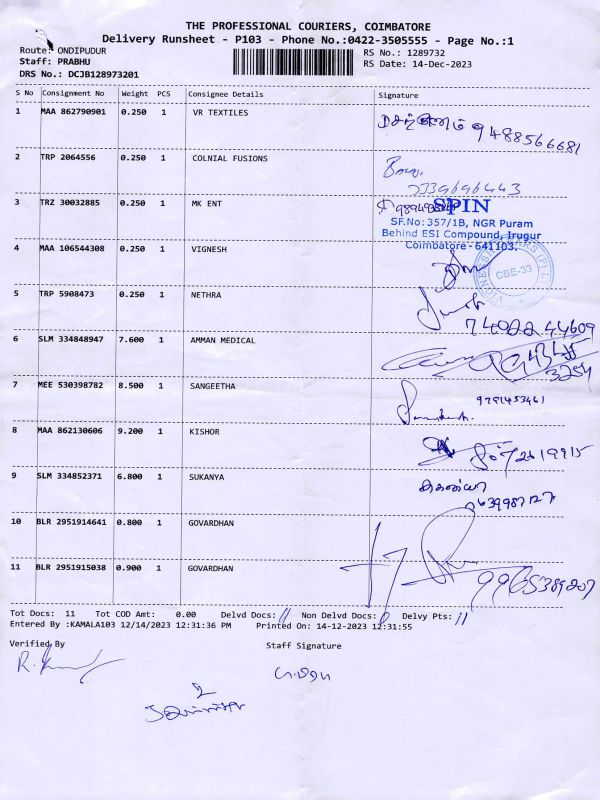 THE PROFESSIONAL COURIERS, COIMBATORE
Delivery Runsheet - P103 - Phone No.:0422-3505555 - Page No.:1
Route: ONDIPUDUR
RS No.: 1289732
Staff: PRABHU
RS Date: 14-Dec-2023
DRS No.: DCJB128973201
S No Consignment No Weight PCS Consignee Details Signature
1 MAA 862790901 0.250 1 VR TEXTILES
9488566681
2 TRP 2064556 0.250 1 COLNIAL FUSIONS
3 TRZ 30032885 0.250 1 MK ENT
SPIN
SF.No: 357/1B, NGR Puram
Behind ESI Compound, Irugur
Coimbatore - 641103.
4 MAA 106544308 0.250 1 VIGNESH
CBE-33
5 TRP 5908473 0.250 1 NETHRA
74022 44609
6 SLM 334848947 7.600 1 AMMAN MEDICAL
7 MEE 530398782 8.500 1 SANGEETHA
9791453461
8 MAA 862130606 9.200 1 KISHOR
9 SLM 334852371 6.800 1 SUKANYA
சுகன்யா
10 BLR 2951914641 0.800 1 GOVARDHAN
11 BLR 2951915038 0.900 1 GOVARDHAN
Tot Docs: 11 Tot COD Amt: 0.00 Delvd Docs: 11 Non Delvd Docs: 0 Delvy Pts: 11
Entered By :KAMALA103 12/14/2023 12:31:36 PM Printed On: 14-12-2023 12:31:55
Verified By Staff Signature